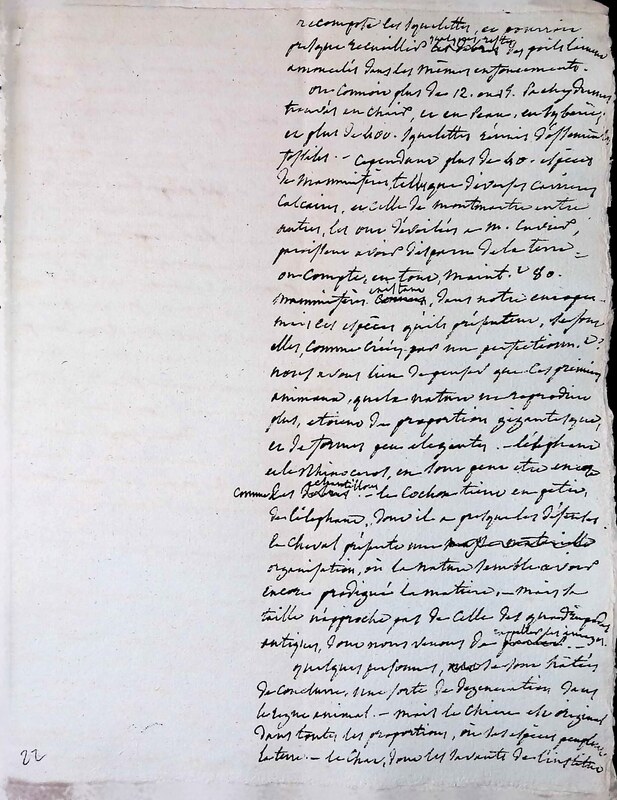 recomposé les squelettes, et pourroit
presque recueillir quelques restes des poils
amoncelés dans les mêmes enfoncements.
on connoit plus de 12. Pachydermes
trouvés en chair, et en Peau, en Sybérie,
et plus de 400. squelettes réunis d'ossements
fossiles. - Cependant plus de 40. espèces
de Mammifères, telles que diverses carrières
calcaires, et celle de Montmartre entre
autres, les ont dévoilées a M. Cuvier,
paroissent avoir disparu de la terre -
on compte, en tout, maint.t 80.
Mammifères existans, dans notre
mais les espèces qu'ils présentent, se sont
elles, comme créées, par un perfectionn.t?
nous avons lieu de penser que ces premiers
animaux, que la nature ne reproduit
plus, étoient de proportion gigantesque,
et de formes peu élégantes. - l'éléphant
et le Rhinoceros, en sont peut être encore
comme des échantillons - le Cochon tient en petit,
de l'éléphant, dont il a presque les défenses.
le Cheval présente une
organisation, où la nature semble avoir
encore prodigué la matière, - mais sa
taille n'approche pas de celle des quadrupèdes
antiques, dont nous venons de rappeller les images. -
quelques personnes, se sont hâtées
de conclure, une sorte de dégénération dans
le règne animal. - mais le Chien est originel
dans toutes les proportions, où ses espèces peuplent
la terre. - le Chat, dont les savants de l'institut
22